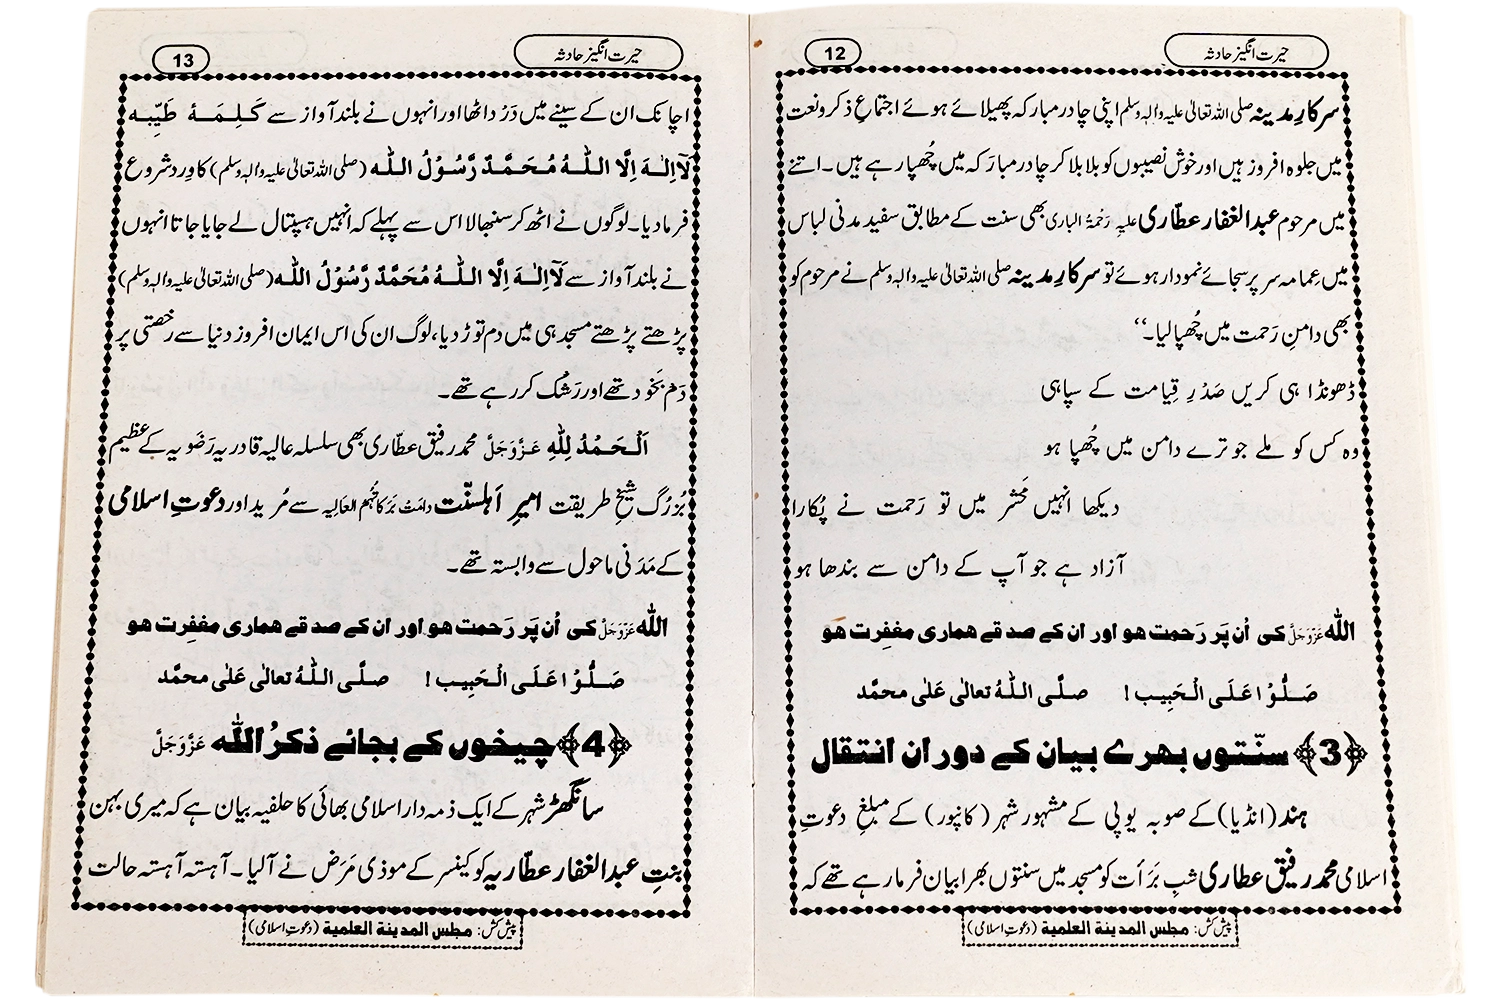 حیرت انگیز حادثہ
12
سرکارِ مدینہ صلی اللہ تعالیٰ علیہ واٰلہٖ وسلم اپنی چادرِ مبارکہ پھیلائے ہوئے اجتماعِ ذکر و نعت
میں جلوہ افروز ہیں اور خوش نصیبوں کو بلا بلا کر چادرِ مبارَکہ میں چُھپا رہے ہیں۔ اتنے
میں مرحوم عبدالغفار عطّاری علیہِ رَحْمَۃُ الباری بھی سنت کے مطابق سفید مدنی لباس
میں عِمامہ سر پر سجائے نمودار ہوئے تو سرکارِ مدینہ صلی اللہ تعالیٰ علیہ واٰلہٖ وسلم نے مرحوم کو
بھی دامنِ رَحمت میں چُھپا لیا۔‘‘
ڈھونڈا ہی کریں صَدْرِ قِیامت کے سپاہی
وہ کس کو ملے جو ترے دامن میں چُھپا ہو
دیکھا انہیں مَحْشر میں تو رَحمت نے پُکارا
آزاد ہے جو آپ کے دامن سے بندھا ہو
اللہ عَزَّوَجَلَّ کی اُن پَر رَحمت ہو اور ان کے صدقے ہماری مغفِرت ہو
صَلُّوْا عَلَی الْحَبِیب! صلَّی اللہُ تعالٰی عَلٰی محمَّد
﴿3﴾ سنّتوں بھرے بیان کے دوران انتقال
ہند (انڈیا) کے صوبہ یوپی کے مشہور شہر (کانپور) کے مبلغِ دعوتِ
اسلامی محمد رفیق عطاری شبِ بَرَأت کو مسجد میں سنتوں بھرا بیان فرما رہے تھے کہ
پیش کش: مجلس المدینۃ العلمیۃ (دعوتِ اسلامی)
حیرت انگیز حادثہ
13
اچانک ان کے سینے میں دَرْد اٹھا اور انہوں نے بلند آواز سے کَلِمَۂ طَیِّبہ
لَآ اِلٰہَ اِلَّا اللہُ مُحَمَّدٌ رَّسُوْلُ اللہ (صلی اللہ تعالیٰ علیہ واٰلہٖ وسلم) کا وِرد شروع
فرما دیا۔ لوگوں نے اٹھ کر سنبھالا اس سے پہلے کہ انہیں ہسپتال لے جایا جاتا انہوں
نے بلند آواز سے لَآ اِلٰہَ اِلَّا اللہُ مُحَمَّدٌ رَّسُوْلُ اللہ (صلی اللہ تعالیٰ علیہ واٰلہٖ وسلم)
پڑھتے پڑھتے مسجد ہی میں دم توڑ دیا، لوگ ان کی اس ایمان افروز دنیا سے رخصتی پر
دَم بَخود تھے اور رَشک کر رہے تھے۔
اَلْحَمْدُ لِلّٰہِ عَزَّوَجَلَّ محمد رفیق عطّاری بھی سلسلہ عالیہ قادریہ رَضَوِیہ کے عظیم
بُزُرگ شیخِ طریقت امیرِ اَہلسنّت دامَتْ بَرَکاتُہُمُ العَالیہ سے مُرید اور دعوتِ اسلامی
کے مَدَنی ماحول سے وابستہ تھے۔
اللہ عَزَّوَجَلَّ کی اُن پَر رَحمت ہو اور ان کے صدقے ہماری مغفِرت ہو
صَلُّوْا عَلَی الْحَبِیب! صلَّی اللہُ تعالٰی عَلٰی محمَّد
﴿4﴾ چیخوں کے بجائے ذکرُ اللہ عَزَّوَجَلَّ
سانگھڑ شہر کے ایک ذمہ دار اسلامی بھائی کا حلفیہ بیان ہے کہ میری بہن
بنتِ عبدالغفار عطّاریہ کو کینسر کے موذی مَرَض نے آ لیا۔ آہستہ آہستہ حالت
پیش کش: مجلس المدینۃ العلمیۃ (دعوتِ اسلامی)